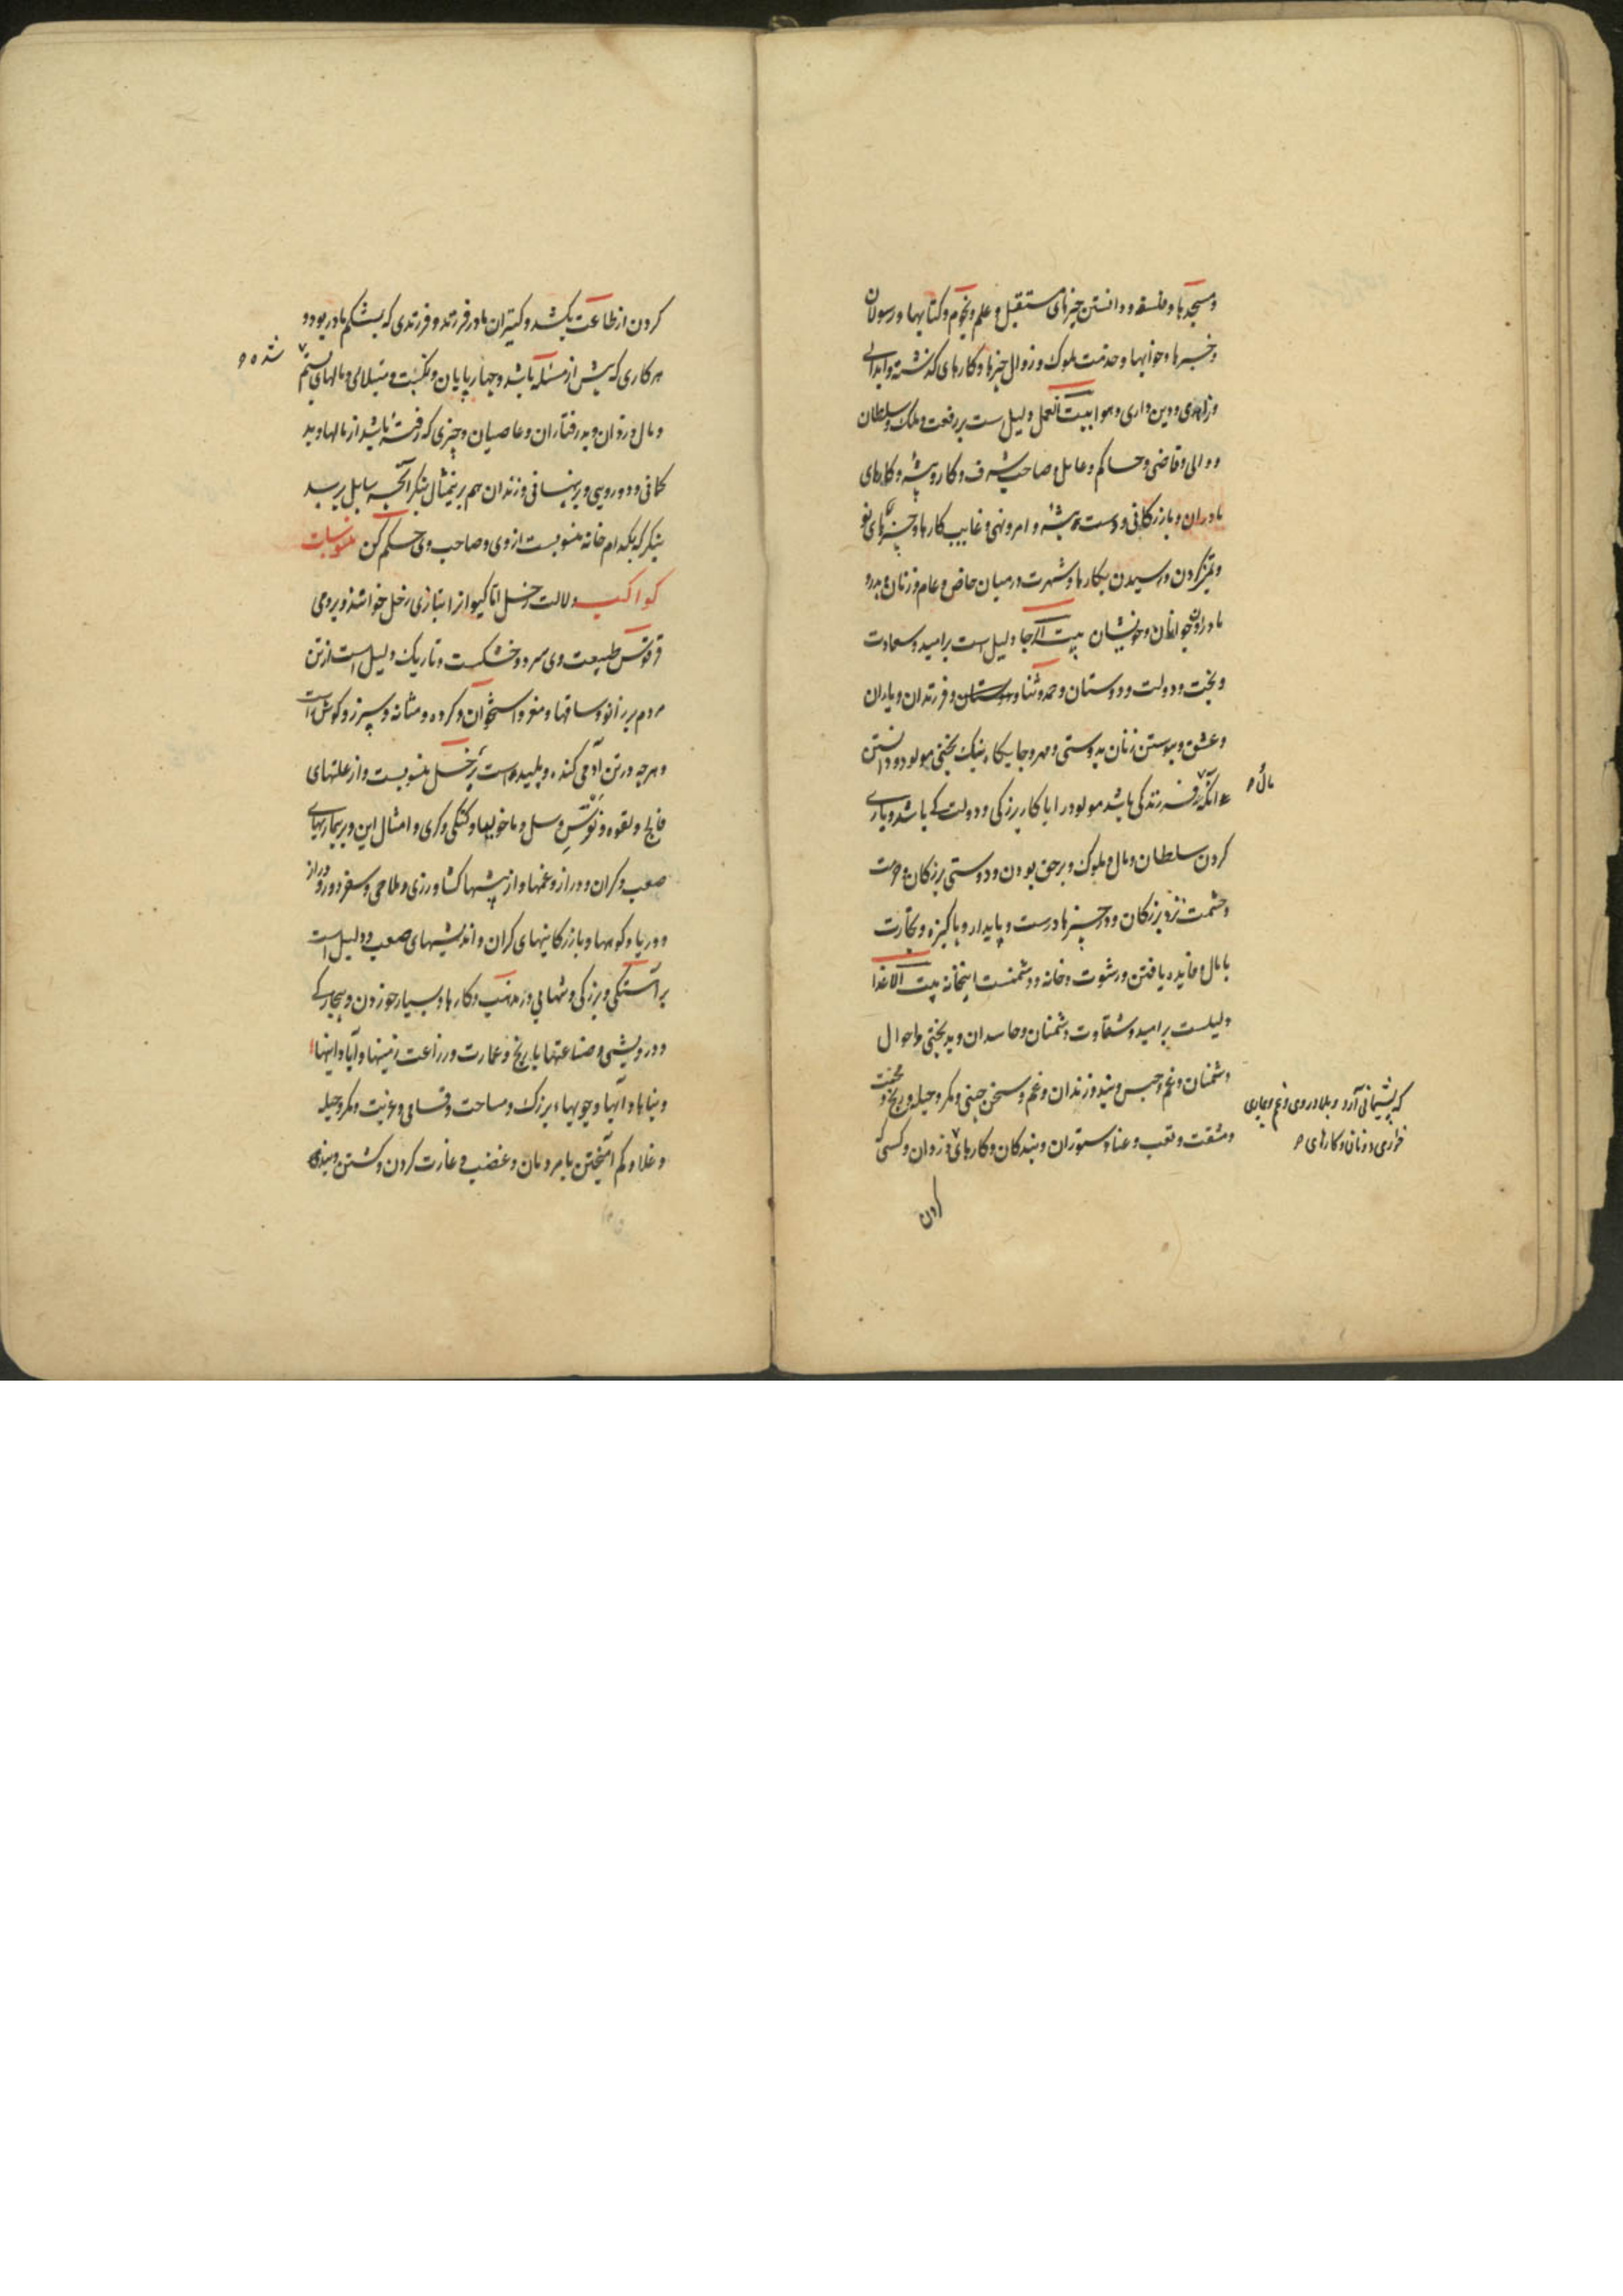 و مسجدها و فلسفه و دانستن چیزهای مستقبل و علم و نجوم و کتابها و رسولان
و خبرها و خوابها و خدمت ملوک و زوال چیزها و کارهای گذشته و ابدانی
و زاهدی و دین داری و هوا بیت العمل دلیل ست بر رفعت و ملک و سلطان
و والی و قاضی و حاکم و عامل و صاحب شرف و کار و پیشه و کارهای
مادران و بازرگانی و دست و پیشه و امر و نهی و غایب کارها و چیزهای نو
و تمیز کردن و رسیدن بکارها و شهرت در میان خاص و عام و زنان پدر و
مادر و جوانان و خویشان بیت الرجا دلیل است بر امید و سعادت
و بخت و دولت و دوستان و حمد و ثنا و فرزندان و یاران
و عشق و پیوستن زنان بدوستی و مهر و جایگاه نیک بختی مولود و دانستن
آنکه فرزندکی باشد مولود را با کار بزرگی و دولت کی باشد و یاری
مال
کردن سلطان و مال و ملوک و بر حق بودن و دوستی بزرگان و حرمت
و حشمت نزد بزرگان و در چیزها درست و پایدار و پاکیزه و تجارت
با مال و فایده یافتن و رشوت و خانه و دشمنست اینخانه بیت الاعدا
دلیلست بر امید و شقاوت دشمنان و حاسدان و بدبختی و احوال
دشمنان و غم و حبس و بند و زندان و غم و سخن چینی و مکر و حیله و رنج و محنت
که پشیمانی آرد و بلا در وی و غم و بیماری
و مشقت و تعب و عنا و ستوران و بندگان و کارهای دزدان و کسی که
خواری و زنان و کارهای
کردن
کردن از طاعت بکشد و کنیزان مادر فرزند و فرزندی که بشکم مادر بود و
هر کاری که پیش از مسئله باشد و چهارپایان و نکبت و مبتلائی و مالهای ستم
شده
و مال دزدان و بدرفتاران و عاصیان و چیزی که رفته باشد از مالها و بد
کمانی و دورویی و پریشانی و زندان هم برینمثال بنگر آنچه سایل پرسد
بنگر که بکدام خانه منسوبست از وی و صاحب وی حکم کن منسوبات
کواکب دلالت زحل اما کیوان را بتازی زحل خوانند و برومی
قرونس طبیعت وی سرد و خشکست و تاریک دلیل است از تن
مردم بر زانو و ساقها و مغز و استخوان و گرده و مثانه و سپرز و گوش است
و هر چه در تن آدمی گنده و پلید است بزحل منسوبست و از علتهای
فالج و لقوه و نقرس و سل و ماخولیا و گنگی و کری و امثال این و بیماریهای
صعب و گران و دراز و غمها و از پیشها کشاورزی و ملاحی و سفر دور و دراز
و دریا و کوهها و بازرگانیهای گران و اندیشهای صعب و دلیل است
بر آهستگی و بزرگی و تنهایی در مذهب و کارها و بسیار خوردن و بیچارگی
و درویشی و صناعتها با رنج و عمارت و زراعت زمینها و آبادانیها
و بناها و آبها و جویهاء بزرگ و مساحت و قسامی و عزیت و مکر و حیله
و غلا و کم آمیختن با مردمان و غضب و غارت کردن و کشتن و بندگی